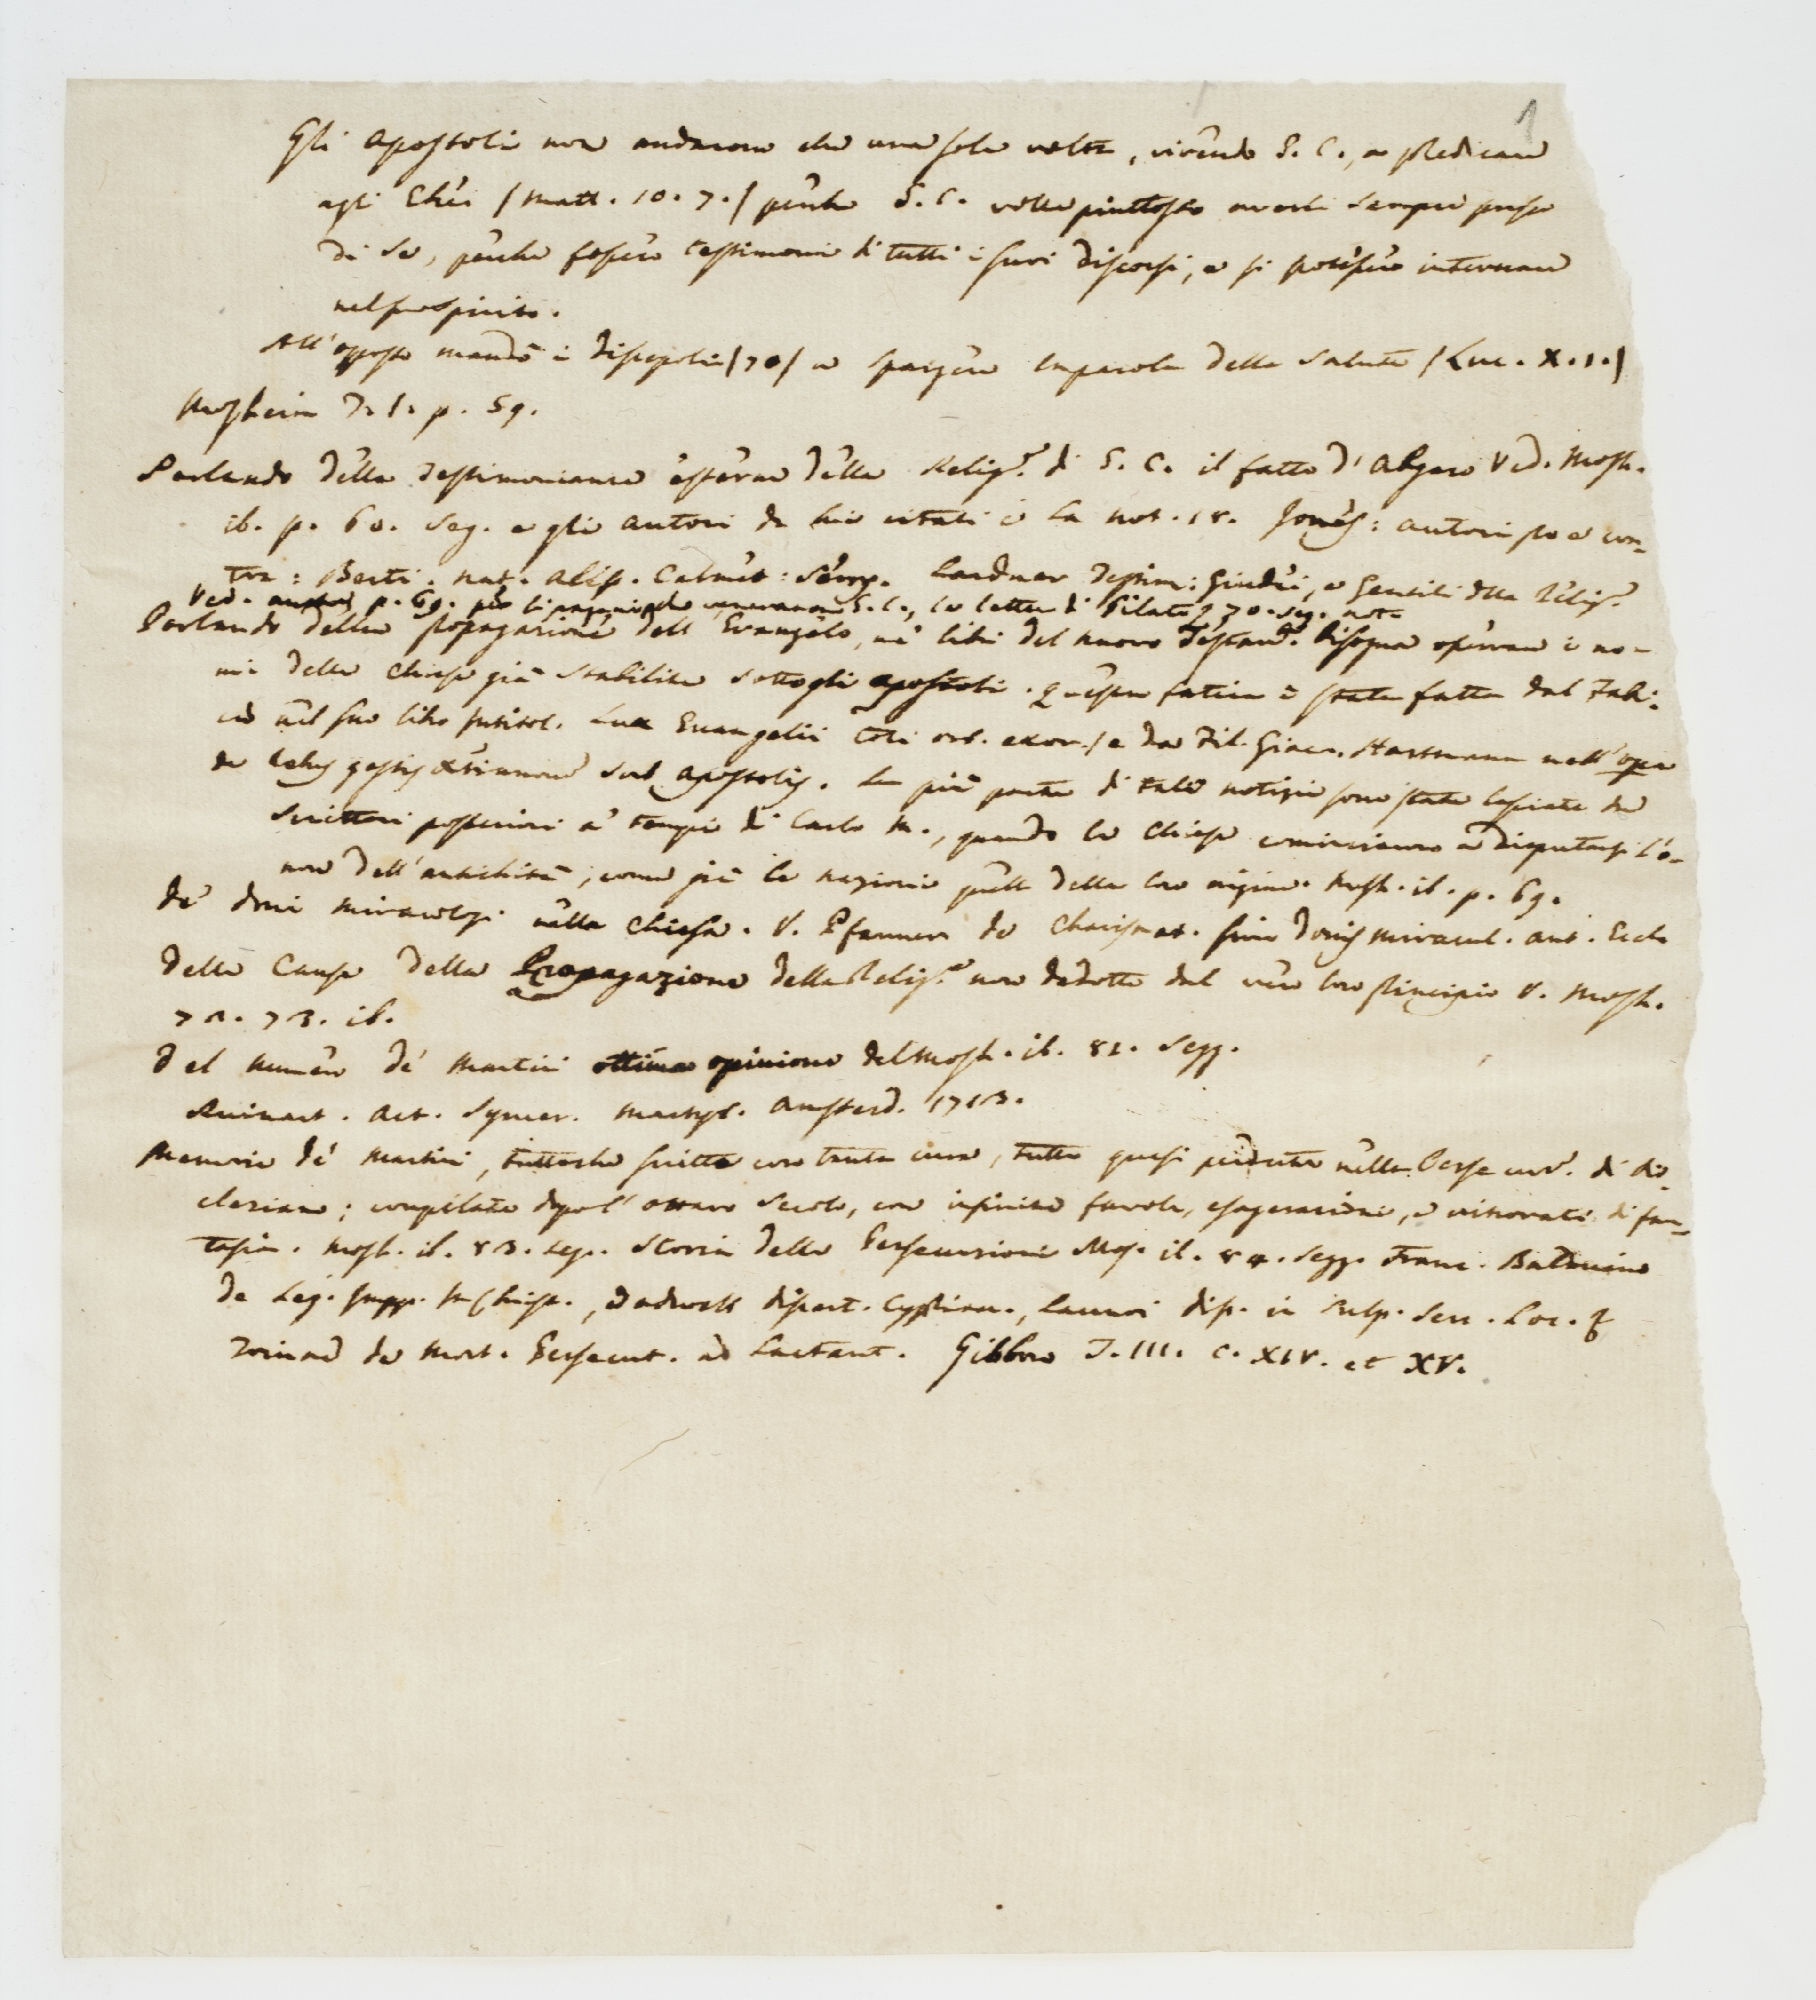 1
Gli Apostoli non andarono che una sola volta, vivendo G. C., a predicare
agli Ebrei (Matt. 10. 7.) perche G. C. volle piuttosto averli sempre presso
di se, perche fossero testimoni di tutti i suoi discorsi, e si potessero internare
nel suo spirito.
All'opposto mandò i discepoli (70) a spargere la parola della salute (Luc. X. 1.)
Mosheim T. I. p. 59.
Parlando delle testimonianze esterne della Relig.e di G. C. il fatto d'Abgaro Ved. Mosh.
ib. p. 60. seg. e gli autori da lui citati e la not. 18. Jones: autori pro e con-
tra: Berti. Nat. Aless. Calmet: Serry. Lardner Testim: Giudei, e Gentili della Relig.e
Ved. p. 69. per li pagani che veneravano G. C., la lettera di Pilato p. 70. seg. not.
Parlando della propagazione dell'Evangelo, ne' libri del nuovo Testam.o bisogna osservare i no-
mi delle chiese già stabilite sotto gli Apostoli. Questa fatica è stata fatta dal Fabri-
cio nel suo libro intitol. Lux Evangelii toti orb. exor. e da Fil. Giac. Hartmann nell'opera
de rebus gestis Xtianorum sub Apostolis. La più parte di tali notizie sono state lasciate da
scrittori posteriori a' tempi di Carlo M., quando le chiese cominciarono a disputarsi l'o-
nore dell'antichità, come già le nazioni quello della loro origine. Mosh. ib. p. 69.
De' doni miracolosi nella chiesa. V. Pfanner de Charismat. sive donis miracul. ant. Eccle
Delle Cause della Propagazione della Relig.e non dedotte dal vero loro principio V. Mosh.
72. 73. ib.
Del numero de' Martiri ottima opinione del Mosh. ib. 82. segg.
Ruinart. Act. Syncer. Martyr. Amsterd. 1713.
Memorie de' Martiri, tuttoche scritte con tanta cura, tutte quasi perdute nella Persecuz.e di Dio-
cleziano; compilate dopo l'ottavo secolo, con infinite favole, esagerazioni, e ritrovati di fan-
tasia. Mosh. ib. 83. seg. Storia delle Persecuzioni Mos. ib. 84. segg. Franc. Balduino
de Leg. supp. in Christ., Dodwell dissert. Cyprian., Launoi dis. in Sulp. Sev. Loc. &
Toinard de Mort. Persecut. ad Lactant. Gibbon T. III. c. XIV. et XV.